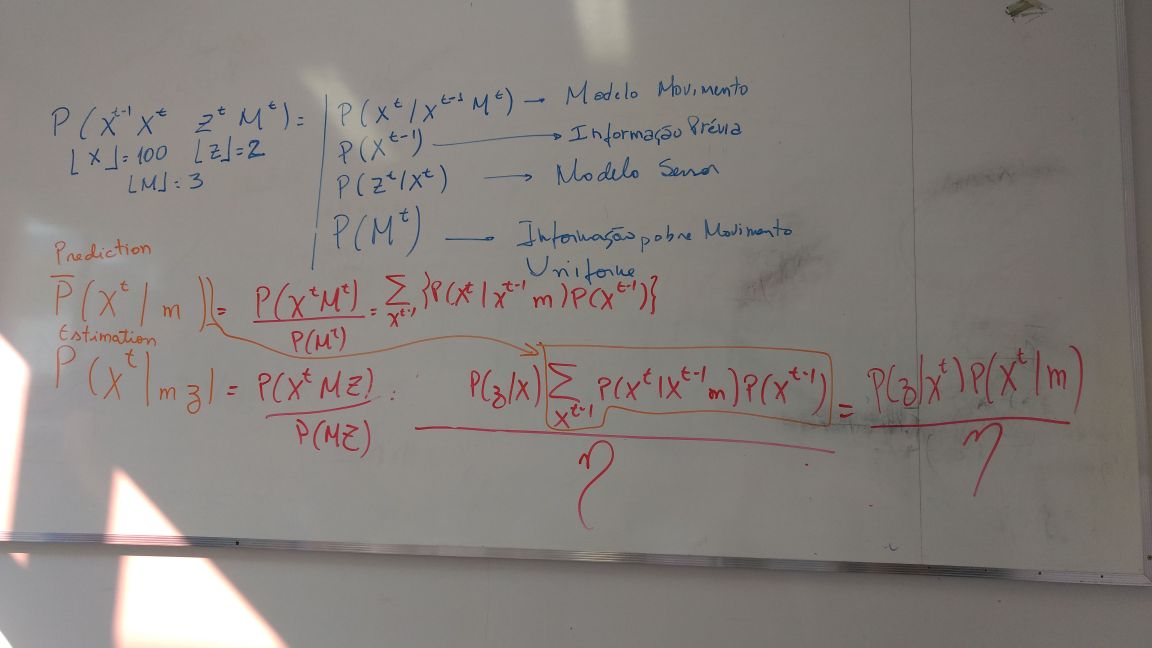 P(X^{t-1} X^t Z^t M^t) = | P(X^t / X^{t-1} M^t) → Modelo Movimento
⌊X⌋ = 100 ⌊Z⌋ = 2 | P(X^{t-1}) → Informação Prévia
⌊M⌋ : 3 | P(Z^t / X^t) → Modelo
| P(M^t) — Informação pobre Movimento
Uniforme
Prediction
P̅(X^t | m) = P(X^t M^t) / P(M^t) = ∑_{X^{t-1}} {P(X^t | X^{t-1} m) P(X^{t-1})}
Estimation
P(X^t | m z) = P(X^t M Z) / P(MZ) : P(z/X) ∑_{X^{t-1}} P(X^t | X^{t-1} m) P(X^{t-1}) / η = P(z | X^t) P(X^t | m) / η